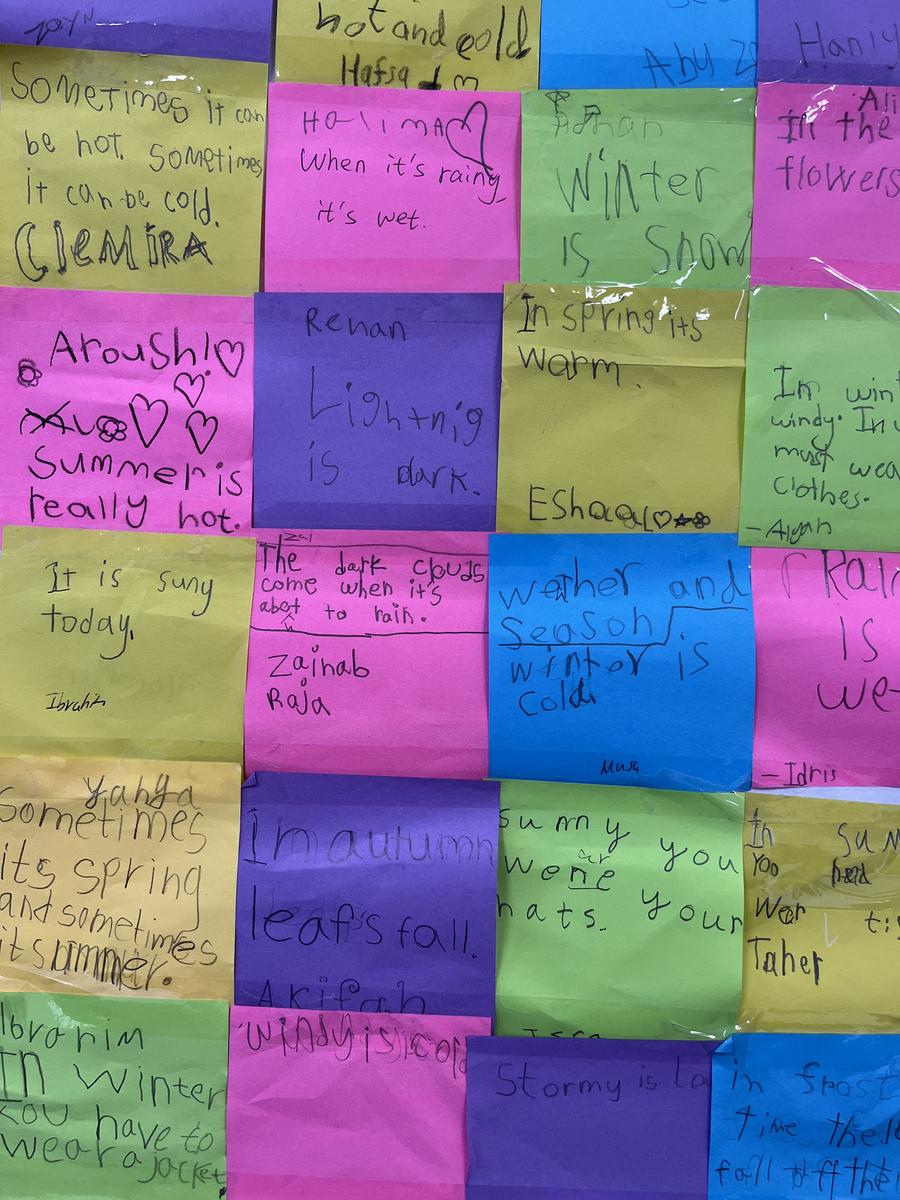 Zayn
hot and cold
Hafsa
Abu
Haniy
Sometimes it can
be hot. Sometimes
it can be cold.
ClemiRA
HalimA
When it's rainy
it's wet.
Adnan
Winter
is Snow
Ali
In the
flowers
Aroush!
Summer is
really hot.
Renan
Lightnig
is dark.
In spring its
warm.
Eshaal
In win
windy. In
must wea
clothes.
- Ayan
It is suny
today.
Ibrahim
The dark clouds
come when it's
abot to rain.
Zainab
Raja
wether and
Season
winter is
cold
Musa
Rain
Is
we
- Idris
Yahya
Sometimes
its spring
and sometimes
its summer.
In autumn
leaf's fall.
Akifah
Sunny you
hats. your
In Sum
You need
Wer
Taher
Ibrahim
In Winter
you have to
wear a jacket
windy is cold
Stormy is lo
in frost
time the
fall off the